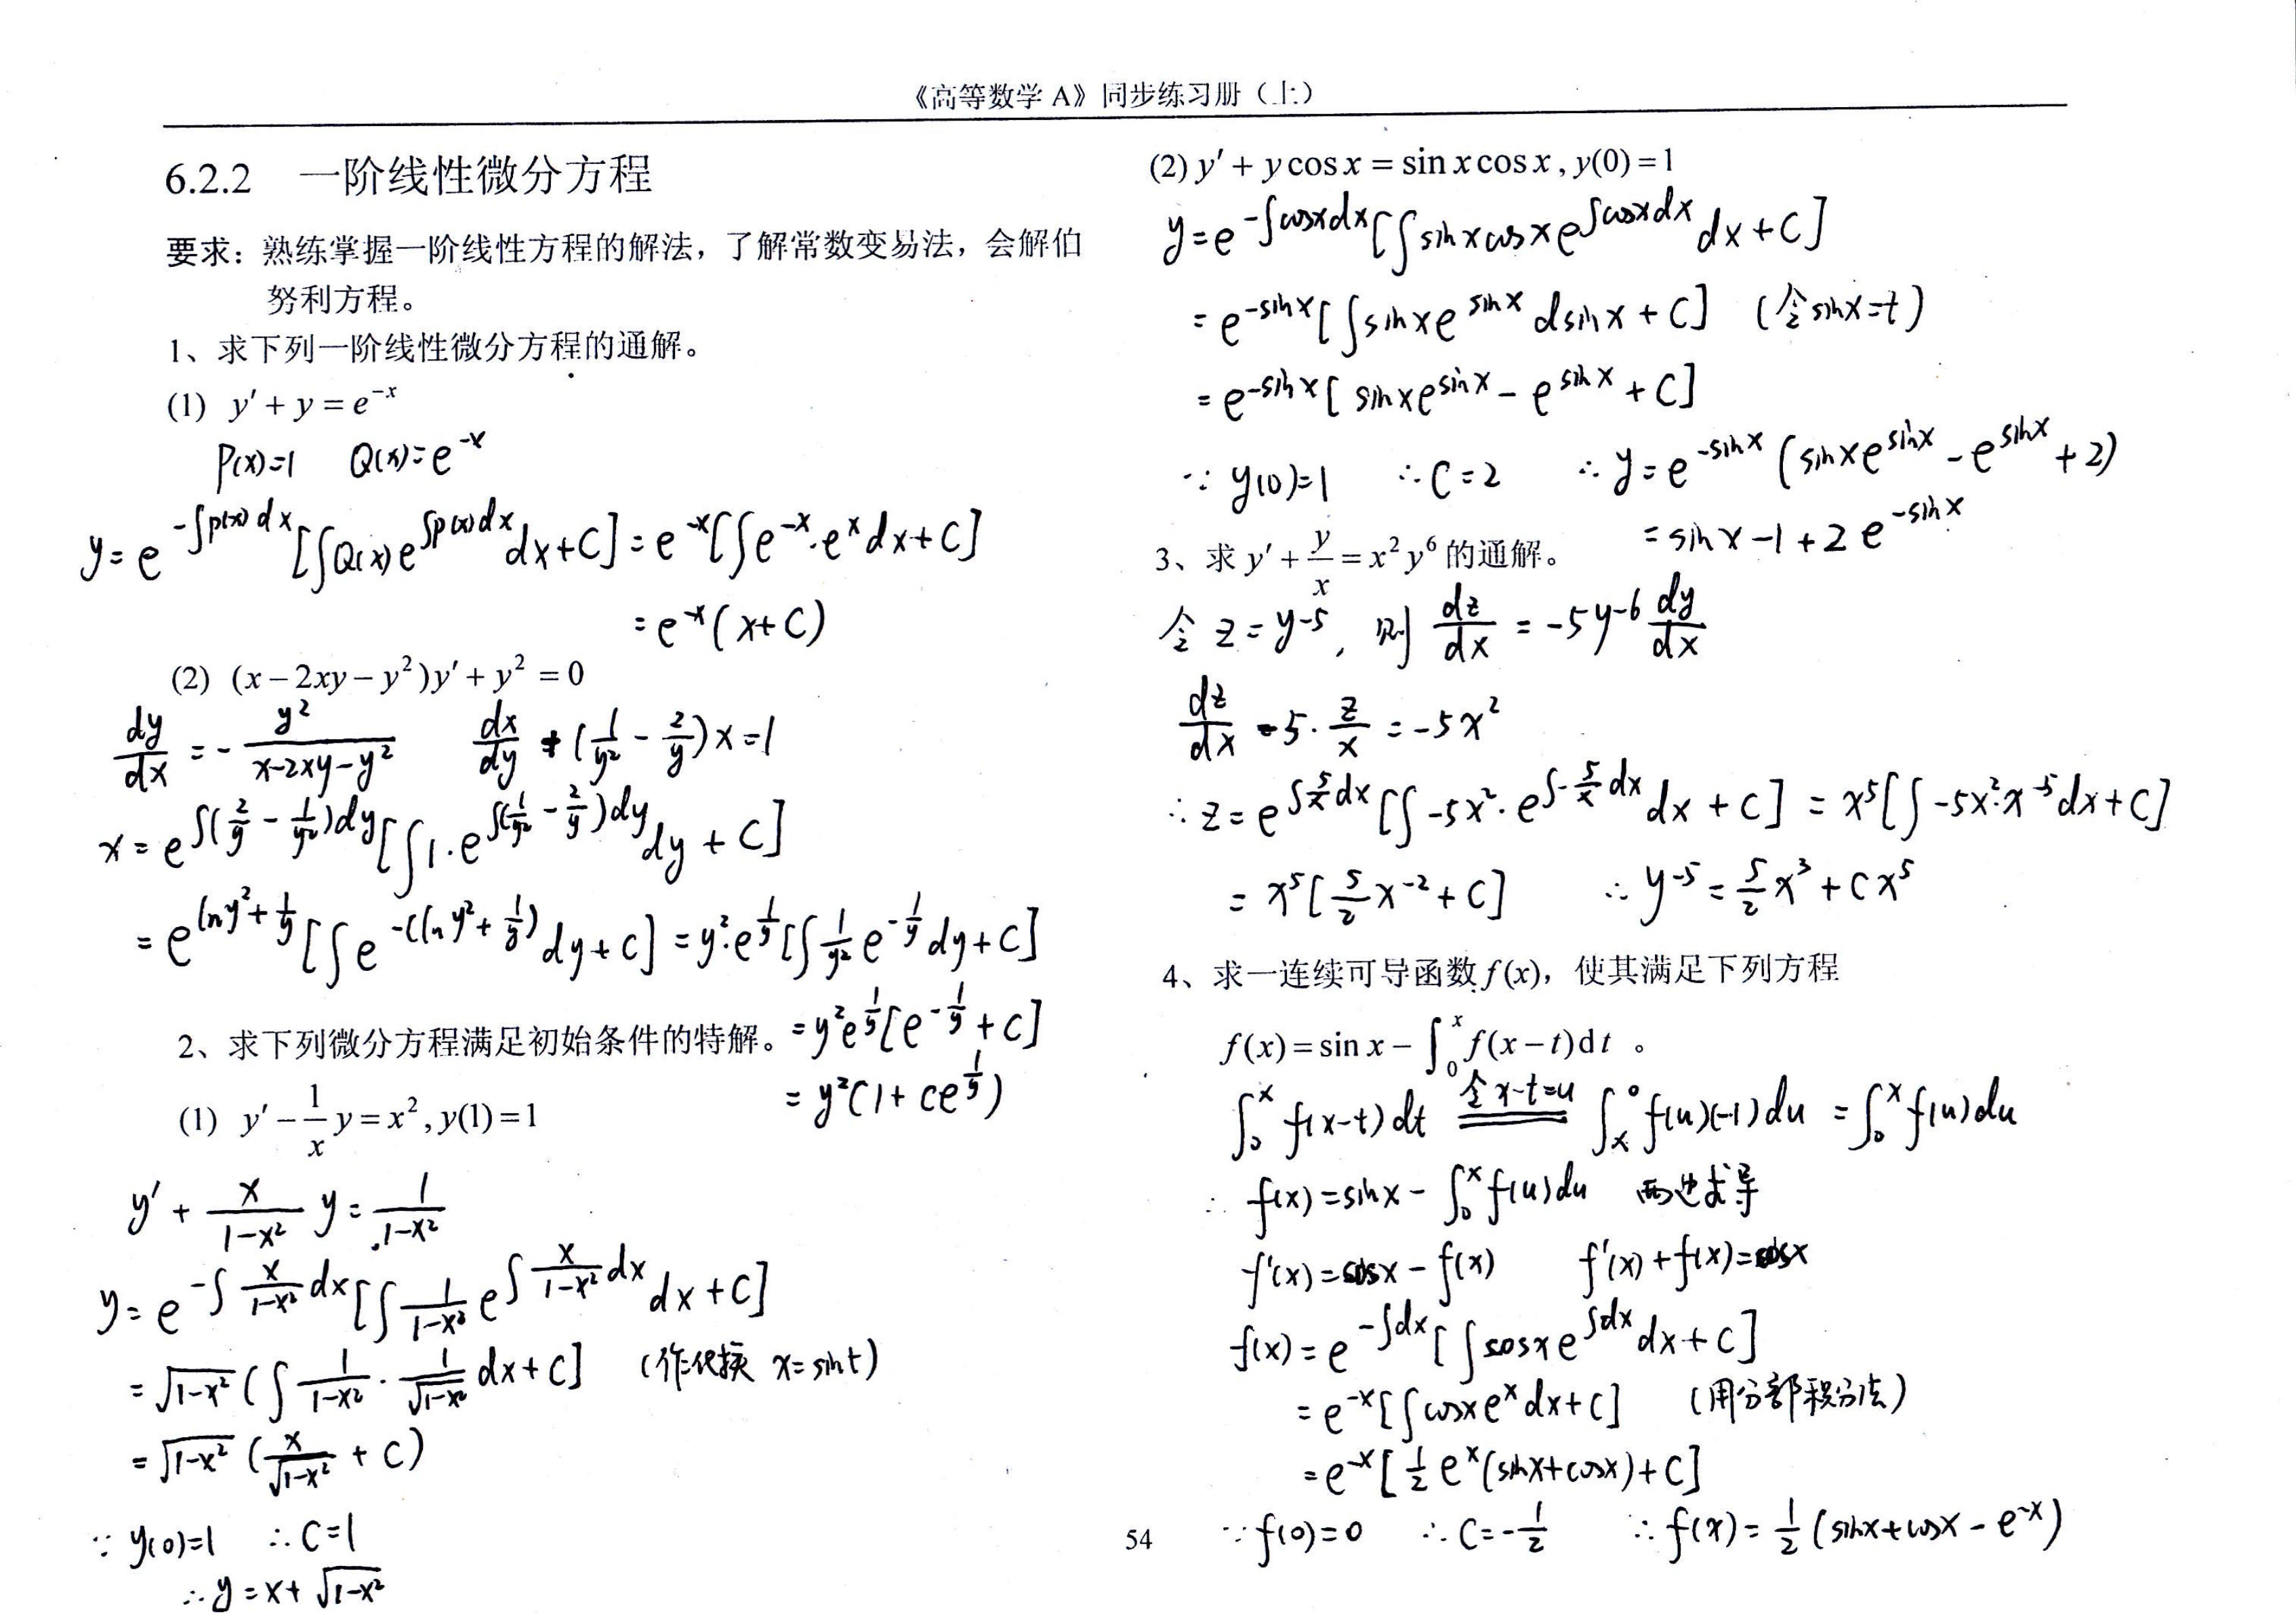 《高等数学 A》同步练习册（上）
6.2.2 一阶线性微分方程
要求：熟练掌握一阶线性方程的解法，了解常数变易法，会解伯
努利方程。
1、求下列一阶线性微分方程的通解。
(1) y′ + y = e^{-x}
P(x)=1 Q(x)=e^{-x}
y = e^{-∫p(x)dx}[∫Q(x)e^{∫p(x)dx}dx+C] = e^{-x}[∫e^{-x}·e^{x}dx+C]
= e^{-x}(x+C)
(2) (x−2xy−y²)y′ + y² = 0
dy/dx = -y²/(x-2xy-y²) dx/dy + (1/y² - 2/y)x = 1
x = e^{∫(2/y - 1/y²)dy}[∫1·e^{∫(1/y² - 2/y)dy}dy + C]
= e^{lny² + 1/y}[∫e^{-(lny² + 1/y)}dy+C] = y²·e^{1/y}[∫1/y² e^{-1/y}dy+C]
= y²e^{1/y}[e^{-1/y}+C]
= y²(1+ce^{1/y})
2、求下列微分方程满足初始条件的特解。
(1) y′ − 1/x y = x², y(1) = 1
y′ + x/(1-x²) y = 1/(1-x²)
y = e^{-∫x/(1-x²)dx}[∫1/(1-x²) e^{∫x/(1-x²)dx}dx+C]
= √(1-x²) (∫1/(1-x²) · 1/√(1-x²) dx+C] (作代换 x=sint)
= √(1-x²) (x/√(1-x²) + C)
∵ y(0)=1 ∴ C=1
∴ y = x+√(1-x²)
(2) y′ + y cos x = sin x cos x, y(0) = 1
y = e^{-∫cosxdx}[∫sinxcosxe^{∫cosxdx}dx+C]
= e^{-sinx}[∫sinxe^{sinx}dsinx+C] (令sinx=t)
= e^{-sinx}[sinxe^{sinx}-e^{sinx}+C]
∵ y(0)=1 ∴ C=2 ∴ y = e^{-sinx}(sinxe^{sinx}-e^{sinx}+2)
= sinx-1+2e^{-sinx}
3、求 y′ + y/x = x²y⁶ 的通解。
令 z = y^{-5}, 则 dz/dx = -5y^{-6} dy/dx
dz/dx - 5·z/x = -5x²
∴ z = e^{∫5/x dx}[∫-5x²·e^{∫-5/x dx}dx+C] = x⁵[∫-5x²·x^{-5}dx+C]
= x⁵[5/2 x^{-2}+C] ∴ y^{-5} = 5/2 x³+Cx⁵
4、求一连续可导函数 f(x)，使其满足下列方程
f(x) = sin x − ∫₀ˣ f(x−t)dt 。
∫₀ˣ f(x-t)dt 令x-t=u ∫ₓ⁰ f(u)(-1)du = ∫₀ˣ f(u)du
∴ f(x) = sinx - ∫₀ˣ f(u)du 两边求导
f′(x) = cosx - f(x) f′(x)+f(x)=cosx
f(x) = e^{-∫dx}[∫cosxe^{∫dx}dx+C]
= e^{-x}[∫cosxe^{x}dx+C] (用分部积分法)
= e^{-x}[1/2 e^{x}(sinx+cosx)+C]
∵ f(0)=0 ∴ C=-1/2 ∴ f(x) = 1/2 (sinx+cosx-e^{-x})
54